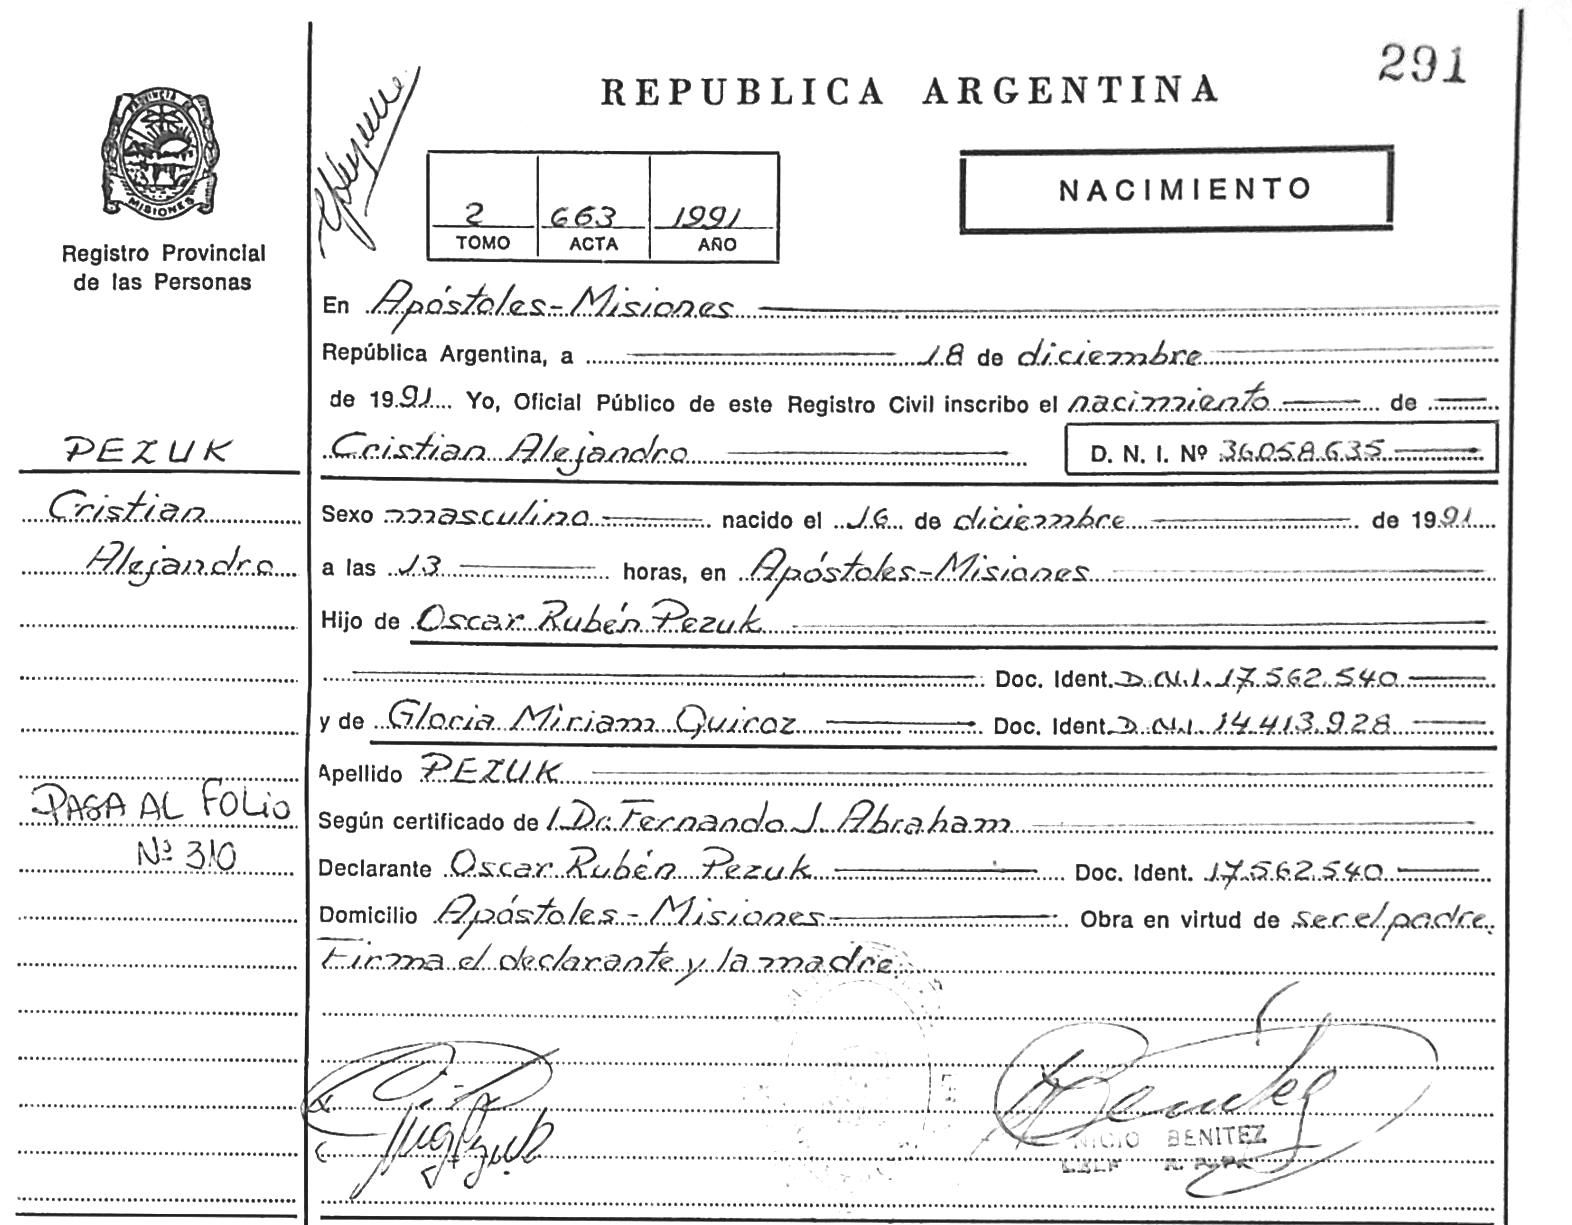 291
REPUBLICA ARGENTINA
PROVINCIA
MISIONES
Registro Provincial
de las Personas
NACIMIENTO
2 663 1991
TOMO ACTA AÑO
En Apóstoles-Misiones
República Argentina, a 18 de diciembre
de 1991 Yo, Oficial Público de este Registro Civil inscribo el nacimiento de
PEZUK
Cristian Alejandro D. N. I. Nº 36058.635
Cristian
Alejandro
Sexo masculino nacido el 16 de diciembre de 1991
a las 13 horas, en Apóstoles-Misiones
Hijo de Oscar Rubén Pezuk
Doc. Ident. D.N.I. 17.562.540
y de Gloria Miriam Quiroz Doc. Ident. D.N.I. 14.413.928
Apellido PEZUK
PASA AL FOLIO
Nº 310
Según certificado de 1.Dr. Fernando J. Abraham
Declarante Oscar Rubén Pezuk Doc. Ident. 17.562.540
Domicilio Apóstoles - Misiones Obra en virtud de ser el padre.
Firma el declarante y la madre
Benitez
NICIO BENITEZ